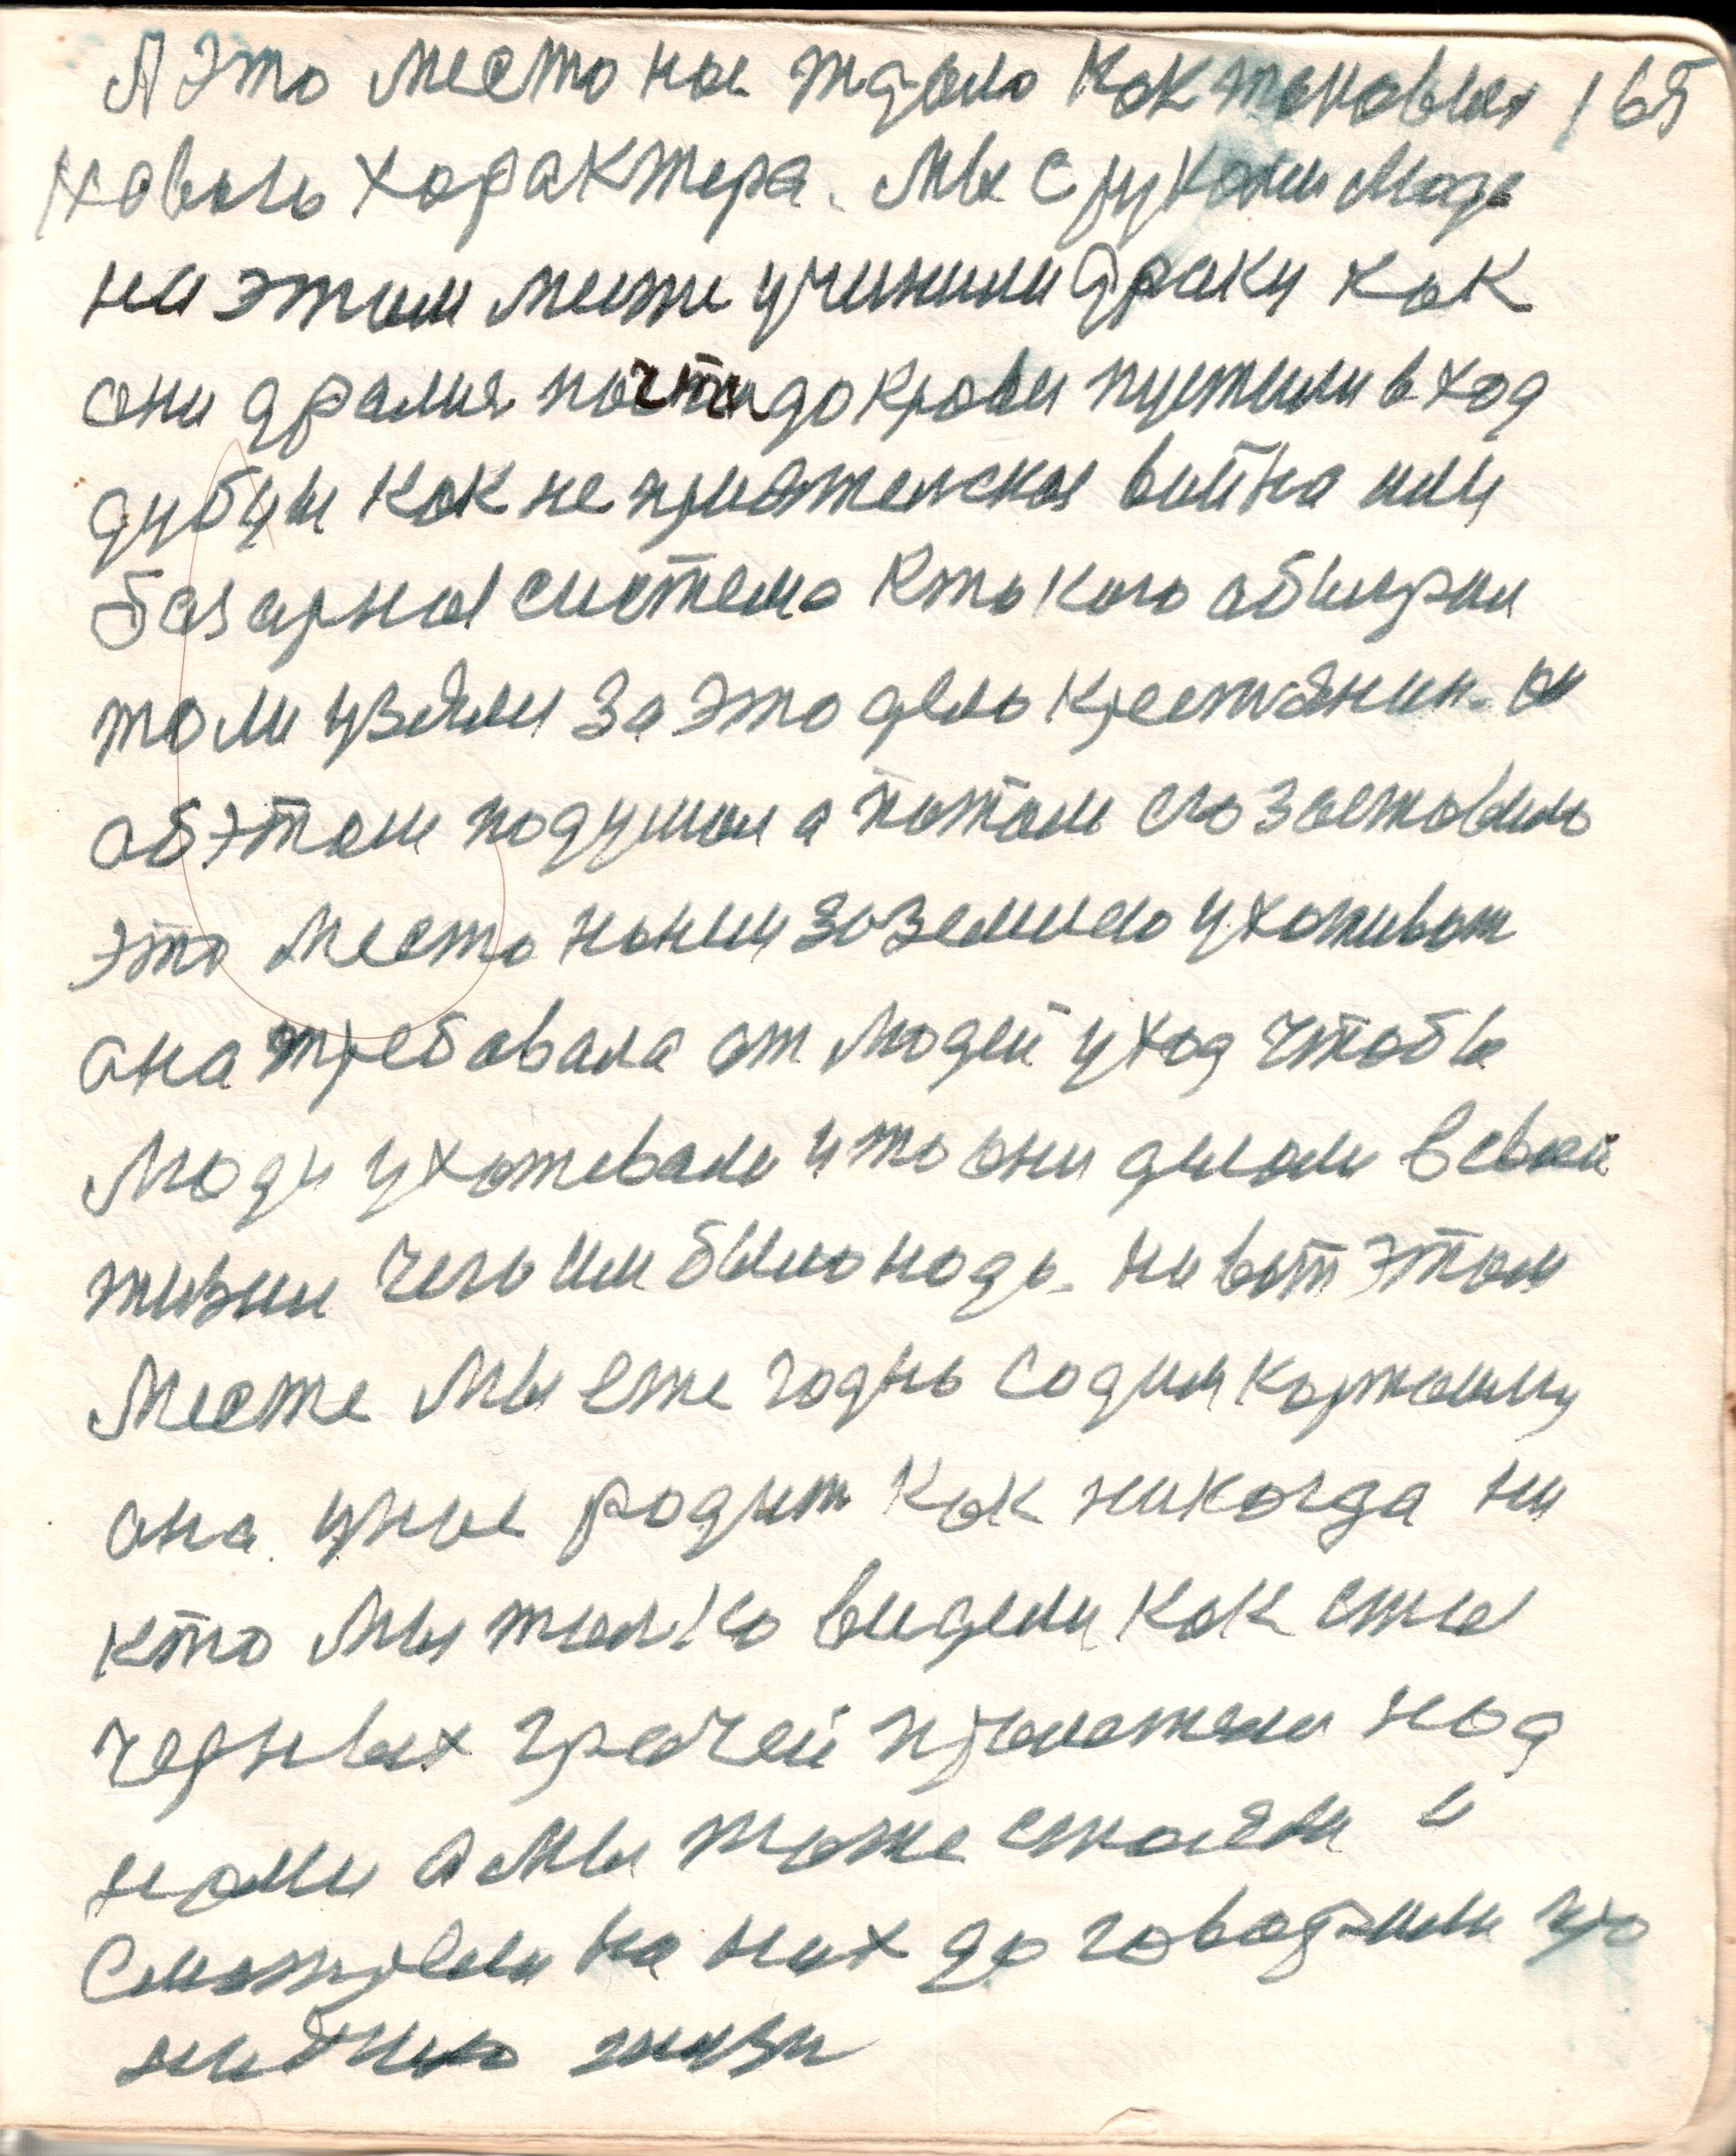 А это место нас ждало как таковых 165
нового характера. Мы с руками люде
на этом месте учинили драку как
они дралися почти до крови пустили в ход
дубцы как неприятельская война или
базарная система кто кого
то ли узяли за это дело крестянин. он
об этом подумал а потом его заставило
это место ныни за землею ухоживат
она требовала от людей уход чтобы
люди ухожевали что они делали в своей
жизни чего им было надо. На вот этом
месте мы еже годно содим картошку
она унас родит как никогда ни
кто мы только видели как стая
черных грачей пролетели над
нами а мы тоже стояли и
смотрели на них да говорили про
жизни